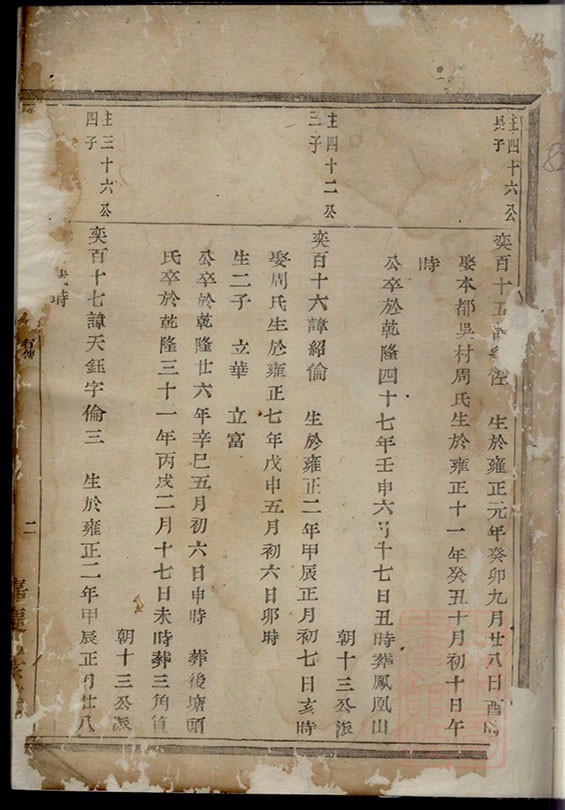 主四十六公
長子
奕百十五 生於雍正元年癸卯九月廿八日酉時
娶本都吳村周氏生於雍正十一年癸丑十月初十日午
時
公卒於乾隆四十七年壬申六月十七日丑時葬鳳凰山
朝十三公派
主四十二公
三子
奕百十六諱紹倫 生於雍正二年甲辰正月初七日亥時
娶周氏生於雍正七年戊申五月初六日卯時
生二子 立華 立富
公卒於乾隆廿六年辛巳五月初六日申時 葬後塘頭
氏卒於乾隆三十一年丙戌二月十七日未時葬三角
朝十三公派
主三十六公
四子
奕百十七諱天鈺字倫三 生於雍正二年甲辰正月廿八
時
行傳
二